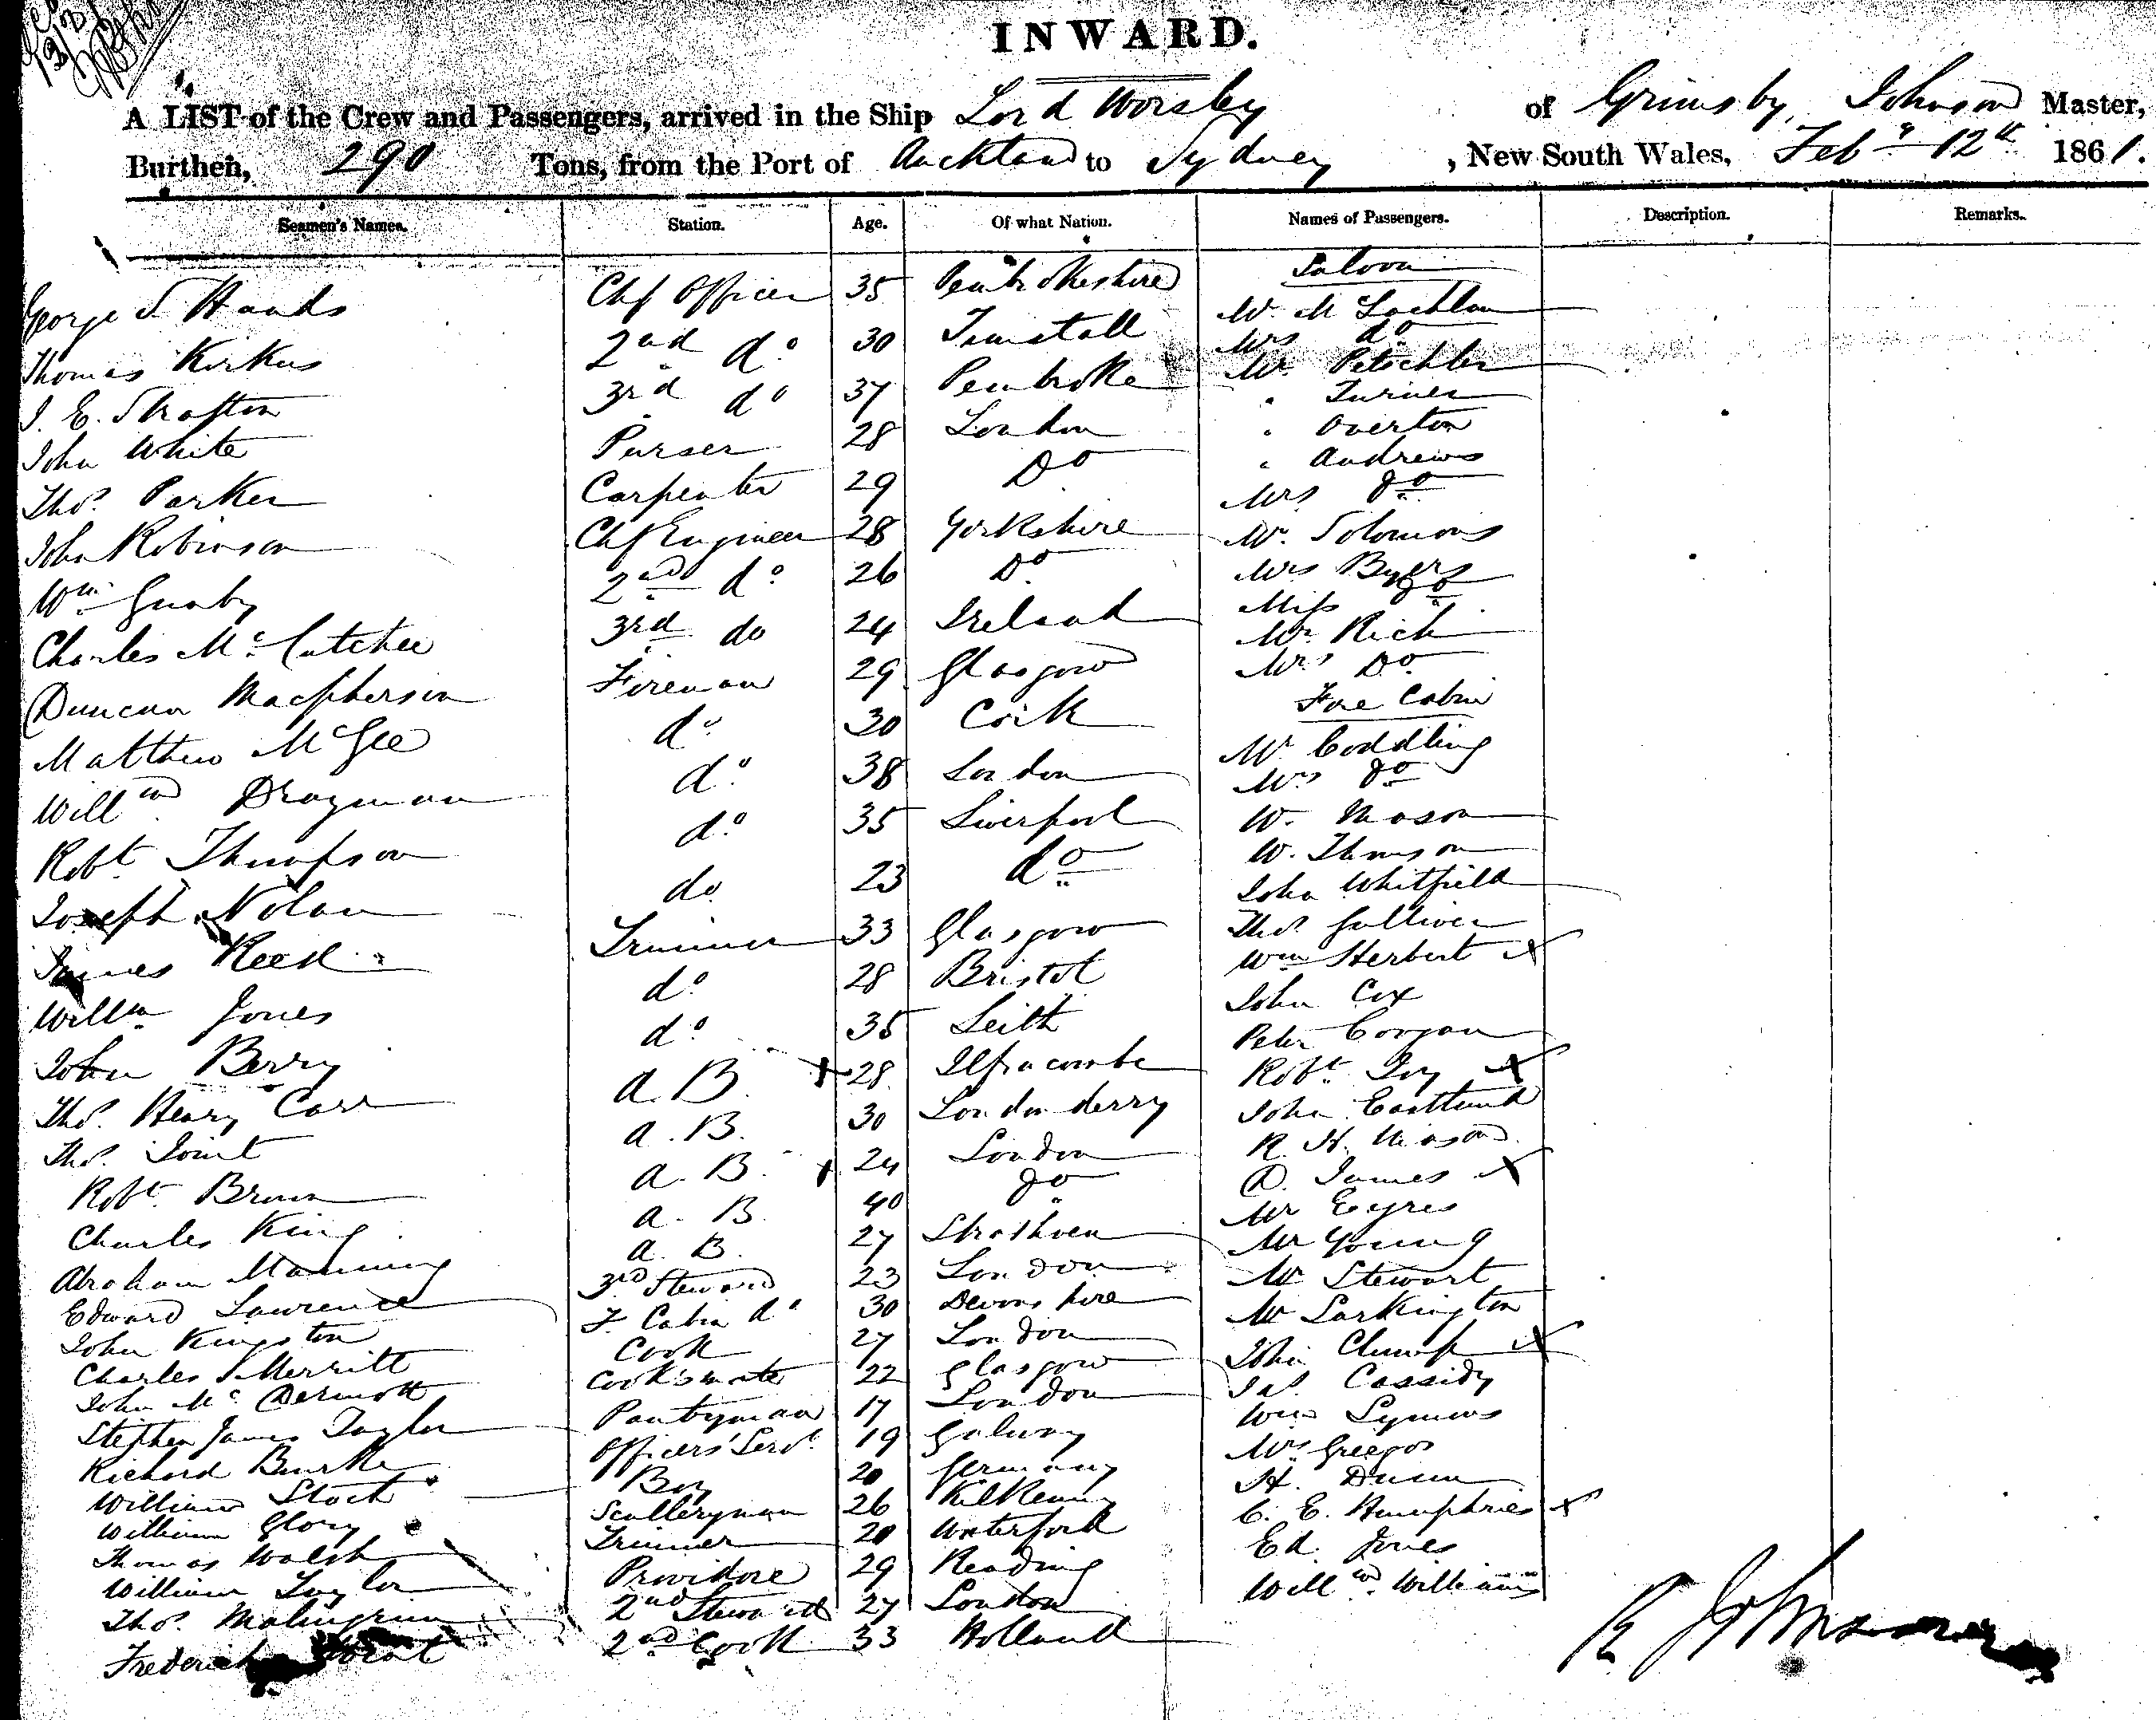 INWARD.
A LIST of the Crew and Passengers, arrived in the Ship Lord Worsley of Grimsby, Johnson Master,
Burthen, 290 Tons, from the Port of Auckland to Sydney, New South Wales, Feby 12th 1861.
Seamen's Names. Station. Age. Of what Nation. Names of Passengers. Description. Remarks.
Saloon
George S Hands Chf Officer 35 Pembrokeshire W. McLachlan
Thomas Kirkus 2nd do 30 Tunstall Mrs do
J. E. Strafton 3rd do 37 Pembroke Mr. Petschler
" Turner
John White Purser 28 London " Overton
" Andrews
Thos. Parker Carpenter 29 Do Mrs do
John Robinson Chf Engineer 28 Yorkshire Mr. Solomons
Wm Gunby 2nd do 26 Do Mrs Byers
Miss do
Charles McCutchee 3rd do 24 Ireland Mr Rich
Mrs Do
Duncan Macpherson Fireman 29 Glasgow Fore Cabin
Matthew McGee do 30 Cork Mr Coddling
Mrs do
Willm Drayman do 38 London W. Mason
Robt Thompson do 35 Liverpool W. Thomson
Joseph Nolan do 23 do John Whitfield
Thos. Gulliver
James Reed Trimmer 33 Glasgow Wm Herbert X
Willm Jones do 28 Bristol John Cox
John Berry do 35 Leith Peter Corgan
Thos. Henry Carr A.B. X 28 Ilfracombe Robt Ivy X
Thos. Joint A.B. 30 Londonderry John Eastlund
R. H. Mason
Robt Brown A.B. X 24 London D. James X
Charles King A.B. 40 do Mr Eyres
Abraham Manning A.B. 27 Strathven Mr Young
Edward Lawrence 3rd Steward 23 London Mr Stewart
John Kingston F. Cabin do 30 Devonshire Mr Larkington
Charles S Merritt Cook 27 London John Clump X
John McDermott Cook's mate 22 Glasgow Jas. Cassidy
Stephen James Taylor Pantryman 17 London Wm Symons
Richard Burke Officers' Servt. 19 Galway Mrs Greegor
William Stock Boy 20 Germany H. Dunn
William Glory Sculleryman 26 Kilkenny C. E. Humphries X
Thomas Walsh Trimmer 20 Waterford Ed. Jones
William Taylor Providore 29 Reading Willm Williams
Thos. 2nd Steward 27 London
Frederick 2nd Cook 33 Holland
R Johnson